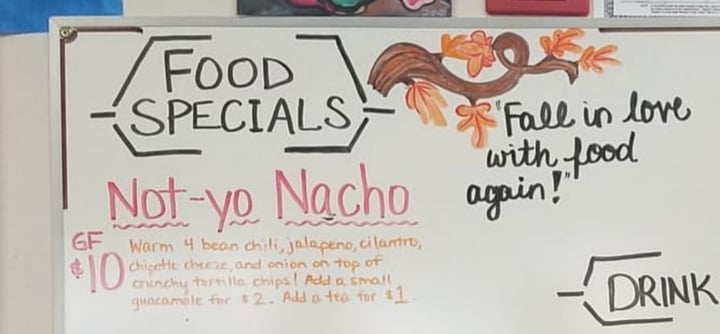 FOOD
SPECIALS
"Fall in love
with food
again!"
Not-yo Nacho
GF
$10
Warm 4 bean chili, jalapeno, cilantro,
chipotle cheeze, and onion on top of
crunchy tortilla chips! Add a small
guacamole for $2. Add a tea for $1
DRINK